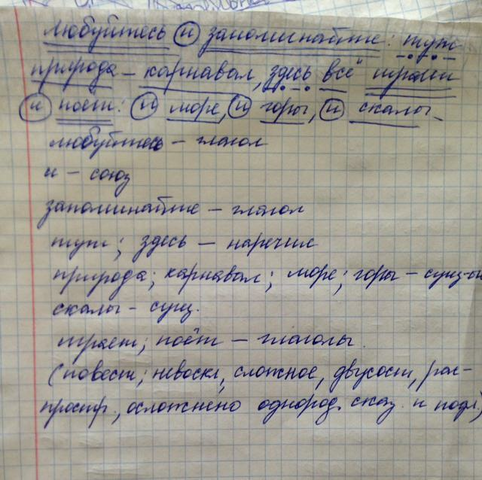 любуйтесь и запоминайте: тут
природа – карнавал, здесь всё играет
и поёт: и море, и горы, и скалы.
любуйтесь – глагол
и – союз
запоминайте – глагол
тут; здесь – наречие
природа; карнавал; море; горы – сущ-ые
скалы – сущ.
играет; поёт – глаголы.
(повест; невоскл, сложное, двусост, рас-
простр, осложнено однород. сказ. и подл.)